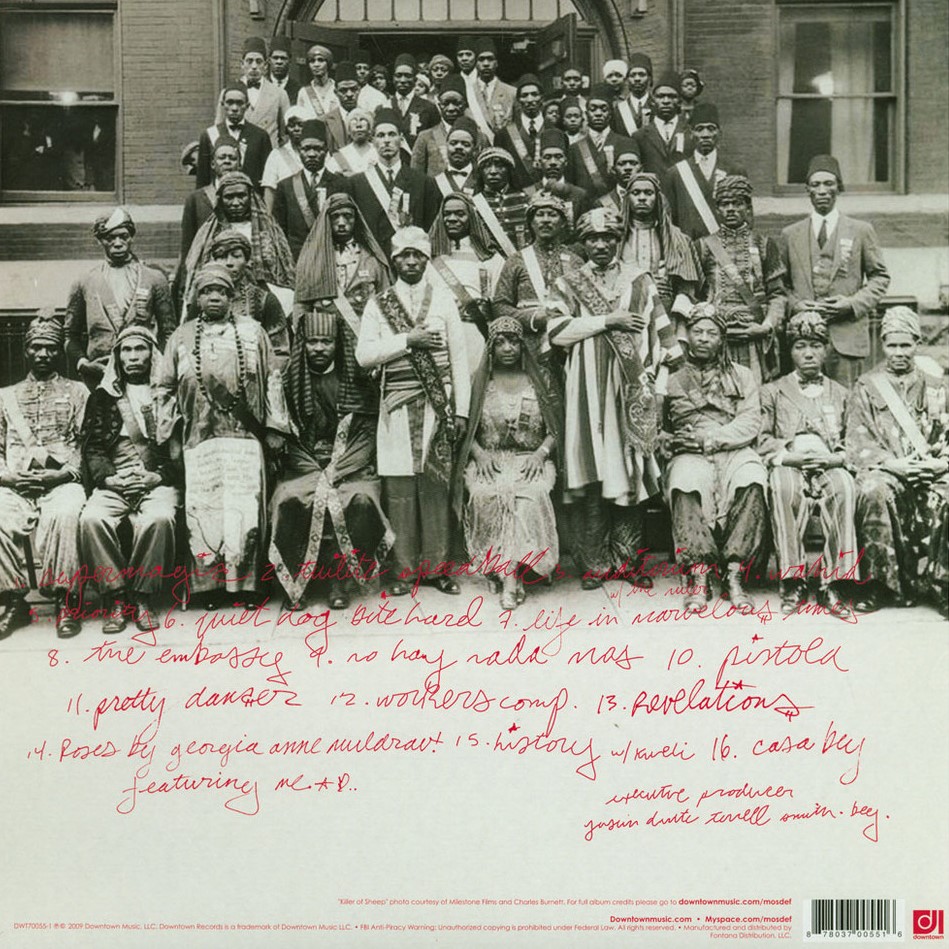 supermagic 2. twilite speedball 3. auditorium 4. wahid
w/ the ruler
5. priority 6. quiet dog bite hard 7. life in marvelous times
8. the embassy 9. no hay nada mas 10. pistola
11. pretty danser 12. workers comp. 13. Revelations
14. Roses by georgia anne muldrow 15. history w/ kweli 16. casa bey
featuring me.
executive producer
smith. bey.
"Killer of Sheep" photo courtesy of Milestone Films and Charles Burnett. For full album credits please go to downtownmusic.com/mosdef
Downtownmusic.com • Myspace.com/mosdef
DWT70055-1 ℗© 2009 Downtown Music, LLC; Downtown Records is a trademark of Downtown Music LLC. • FBI Anti-Piracy Warning: Unauthorized copying is prohibited under Federal Law. All rights reserved. • Manufactured and distributed by
Fontana Distribution, LLC.
8 78037 00551 6
downtown